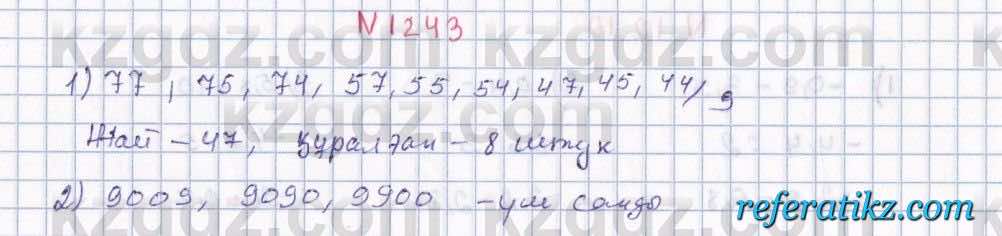 N1243
1) 77, 75, 74, 57, 55, 54, 47, 45, 44/ 9
Жай – 47, Құралған – 8 штук
2) 9009, 9090, 9900 – үш санды
referatikz.com
kzgdz.com